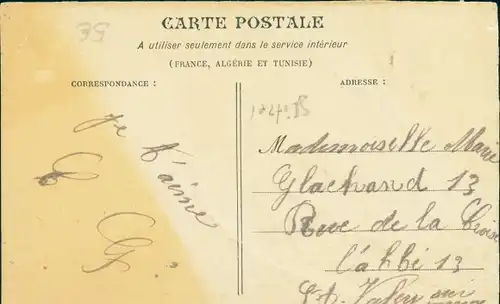 39
CARTE POSTALE
A utiliser seulement dans le service intérieur
(FRANCE, ALGÉRIE ET TUNISIE)
CORRESPONDANCE :
ADRESSE :
je t'aime
Mademoiselle Marie
Glachand 13
Rue de la Croise
l'abbé 13
St Valery